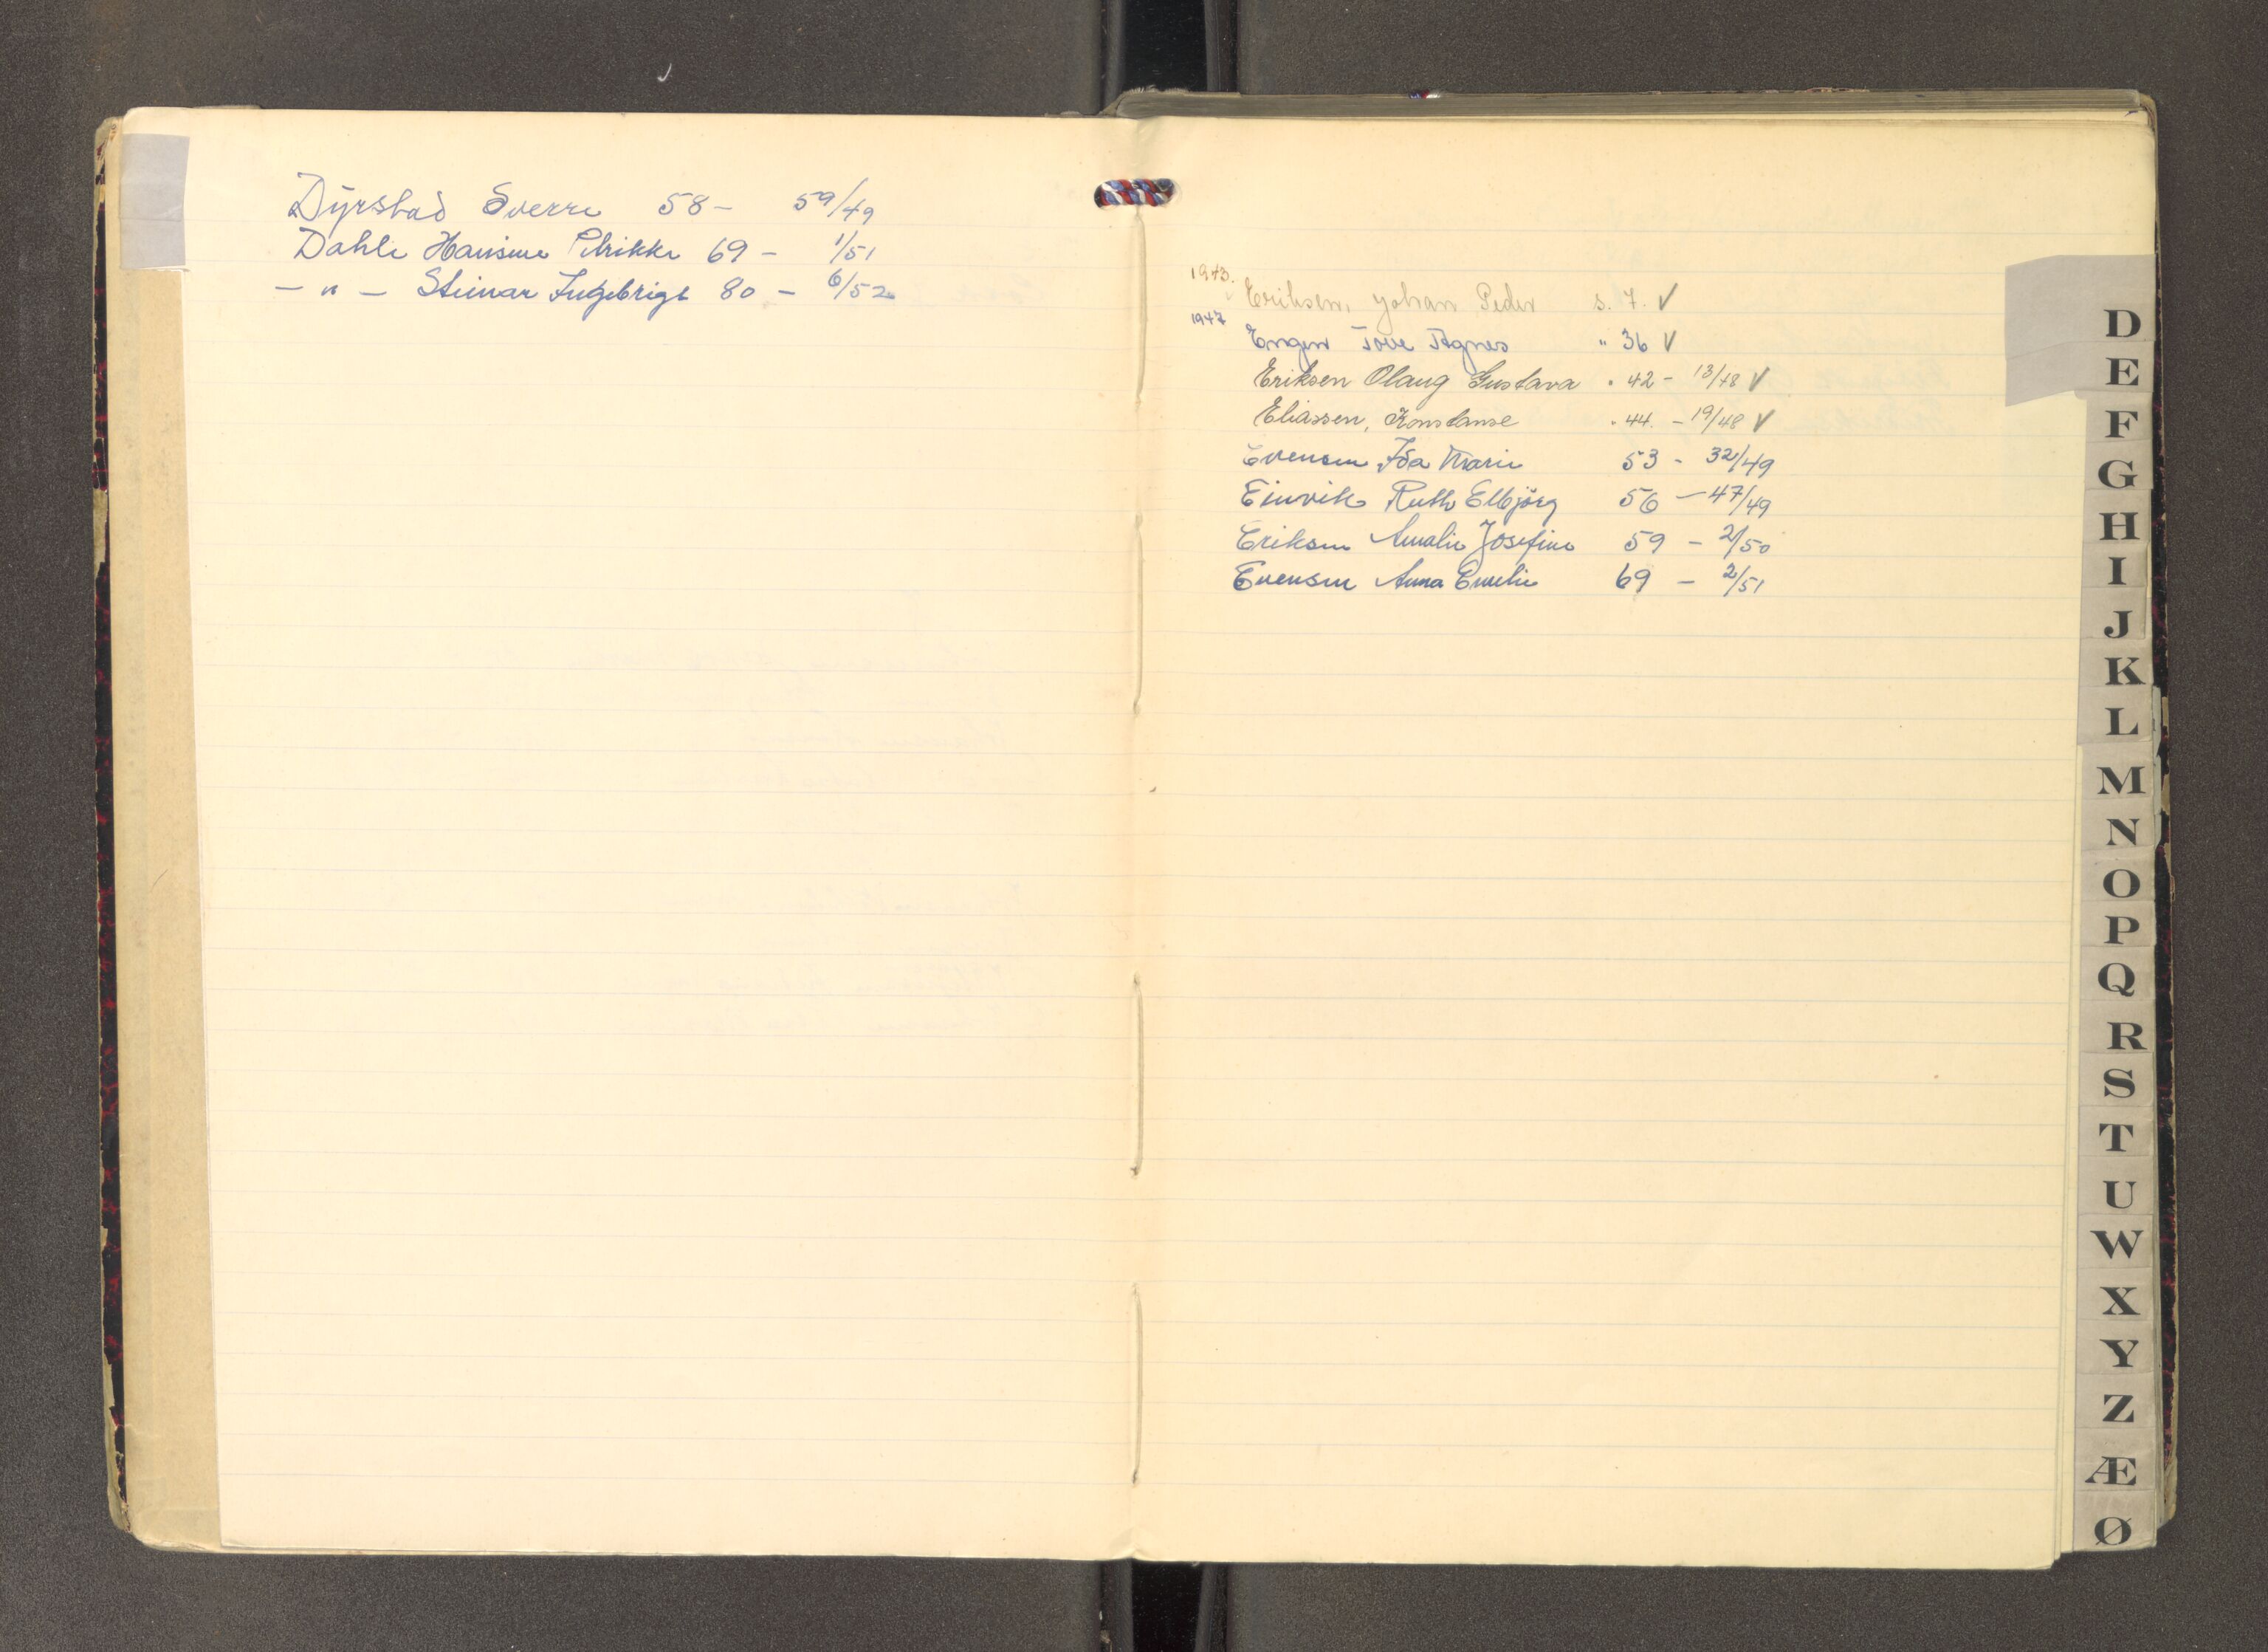 Dyrstad Sverre 58 - 59/49
Dahle Hansine Petrikke 69 - 1/51
- " - Steinar Ingebrigt 80 - 6/52
1943.
Eriksen, Johan Peder s. 7. V
1947
Engen Tove Agnes " 36 V
Eriksen Olaug Gustava " 42 - 13/48 V
Eliassen, Konstanse " 44. - 19/48 V
Evensen Ida Marie 53 - 32/49
Einvik Ruth Elbjörg 56 - 47/49
Eriksen Amalie Josefine 59 - 2/50
Evensen Anna Emelie 69 - 2/51
D
E
F
G
H
I
J
K
L
M
N
O
P
Q
R
S
T
U
W
X
Y
Z
Æ
Ø